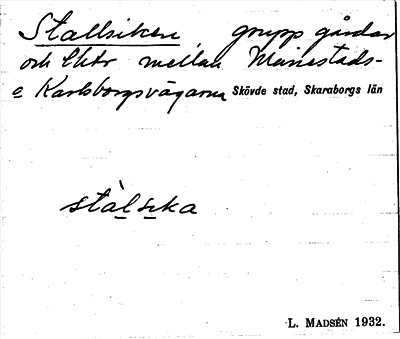 Stallsiken, grupp gårdar
och lhtr mellan Mariestads-
o Karlsborgsvägarna Skövde stad, Skaraborgs län
stàlsıka
L. MADSÉN 1932.